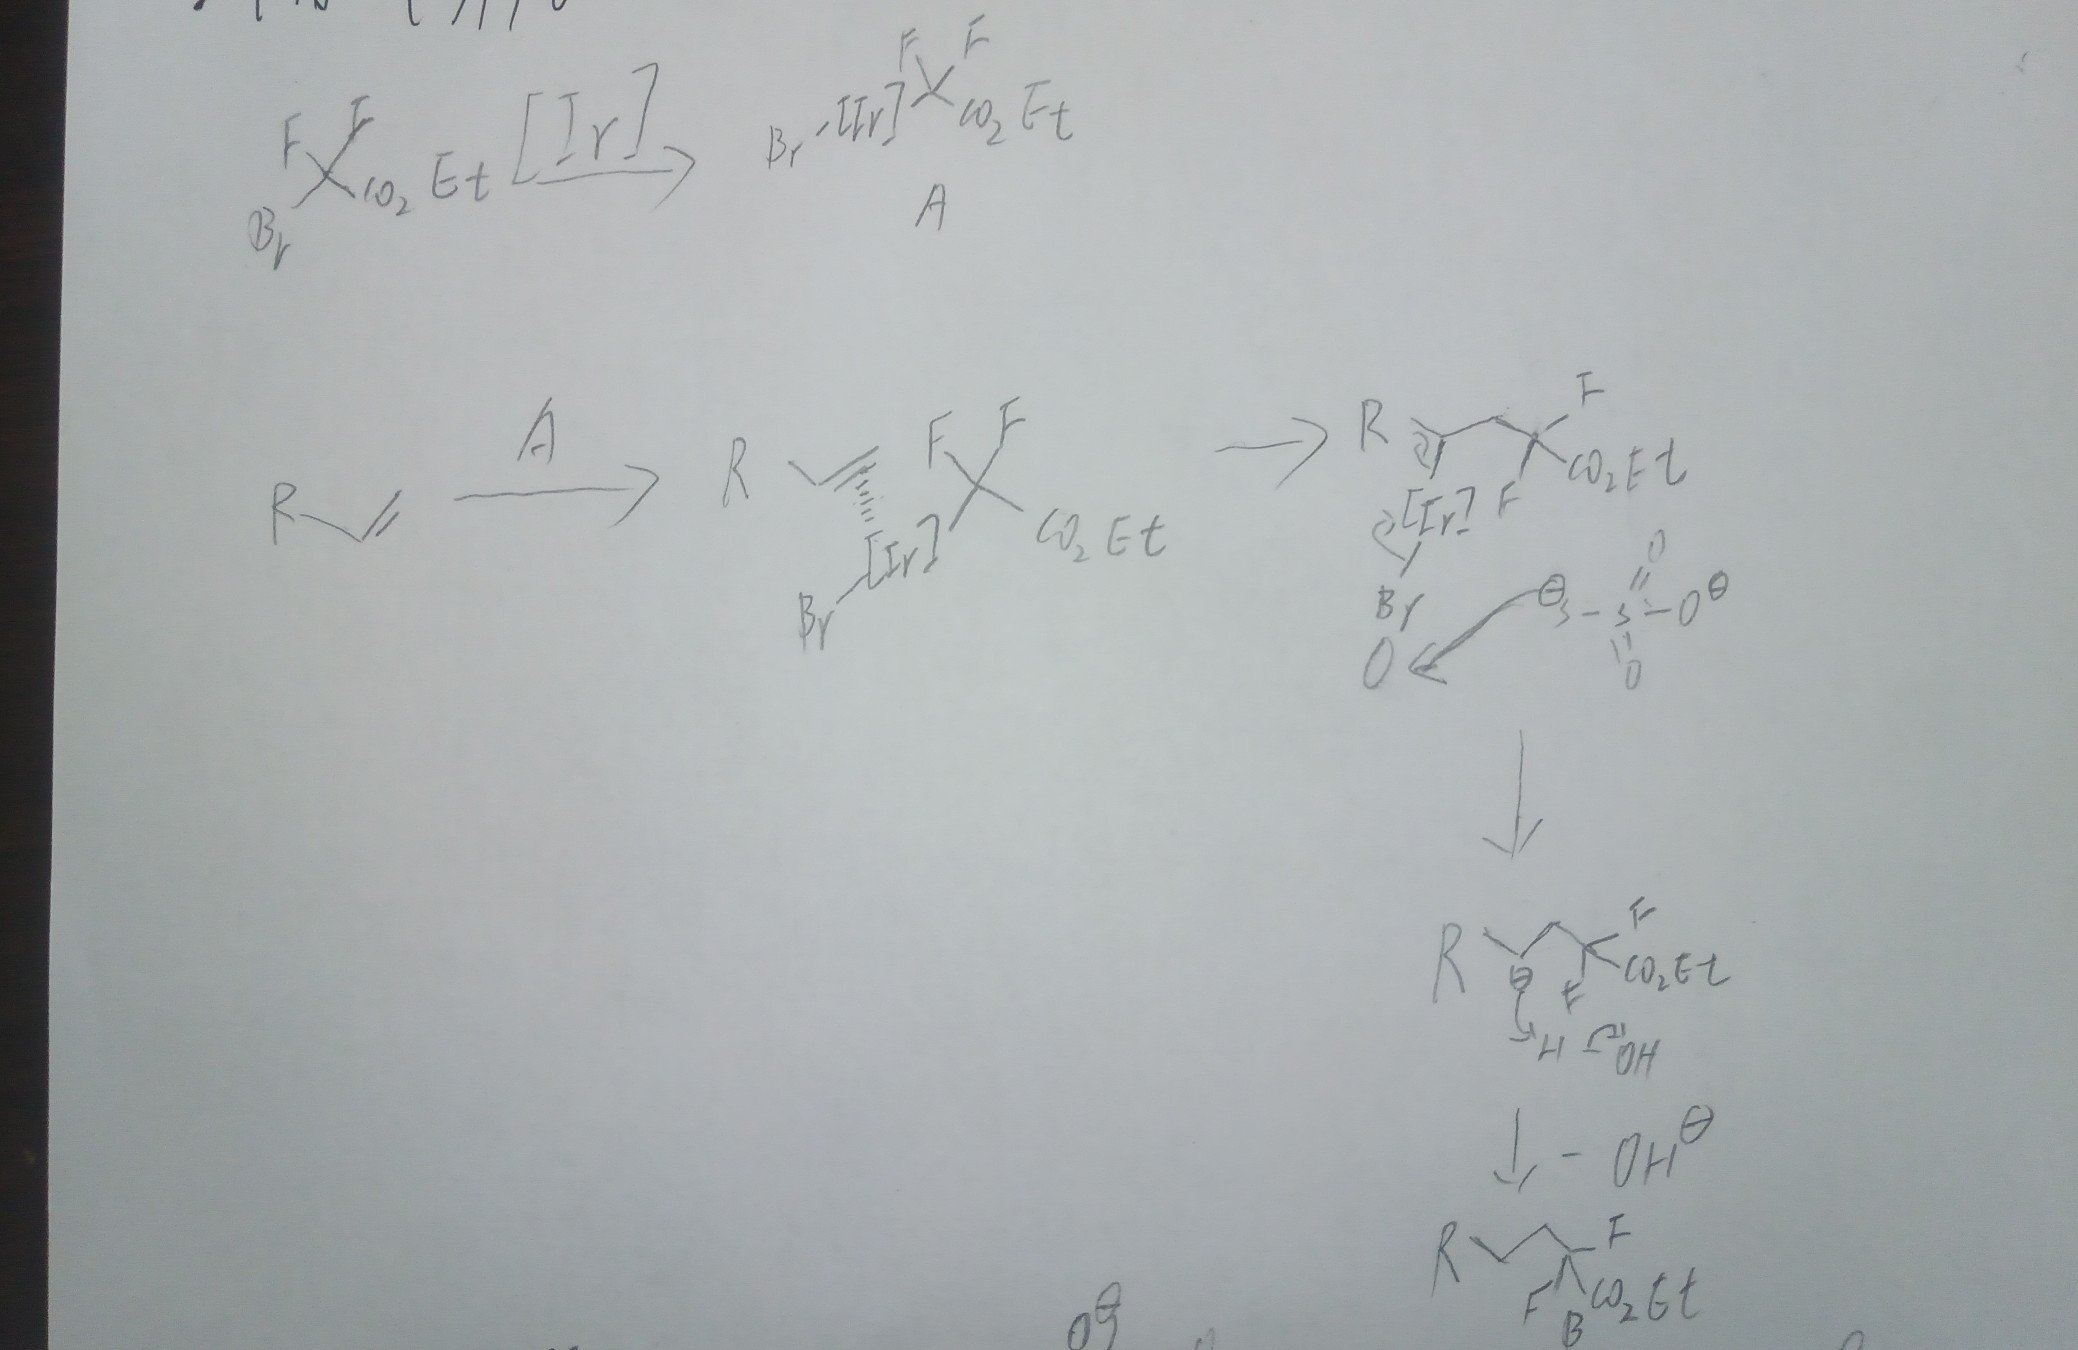 F F
Br CO2Et [Ir] → Br-[Ir] F F CO2Et
A
R A → R F F [Ir] Br CO2Et → R [Ir] F F CO2Et
Br
O ⊖S-S-O⊖
O
O
R ⊖ F F CO2Et
H OH
- OH⊖
R F F CO2Et
B
O⊖